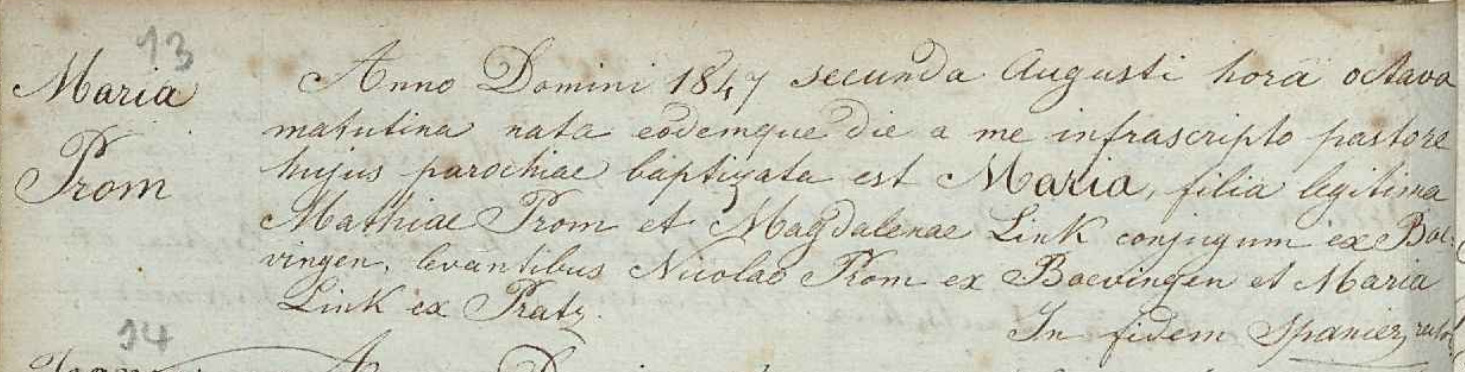 13
Maria
Prom
Anno Domini 1847 secunda Augusti horâ octava
matutina nata eodemque die a me infrascripto pastore
hujus parochiae baptizata est Maria, filia legitima
Mathiae Prom et Magdalenae Link conjugum ex Boe-
vingen, levantibus Nicolao Prom ex Boevingen et Maria
Link ex Pratz.
In fidem Spanier, rector
14
Anno Domini